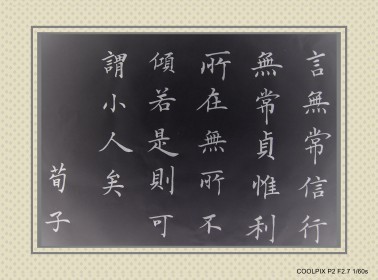 言無常信行
無常貞惟利
所在無所不
傾若是則可
謂小人矣
荀子
COOLPIX P2 F2.7 1/60s